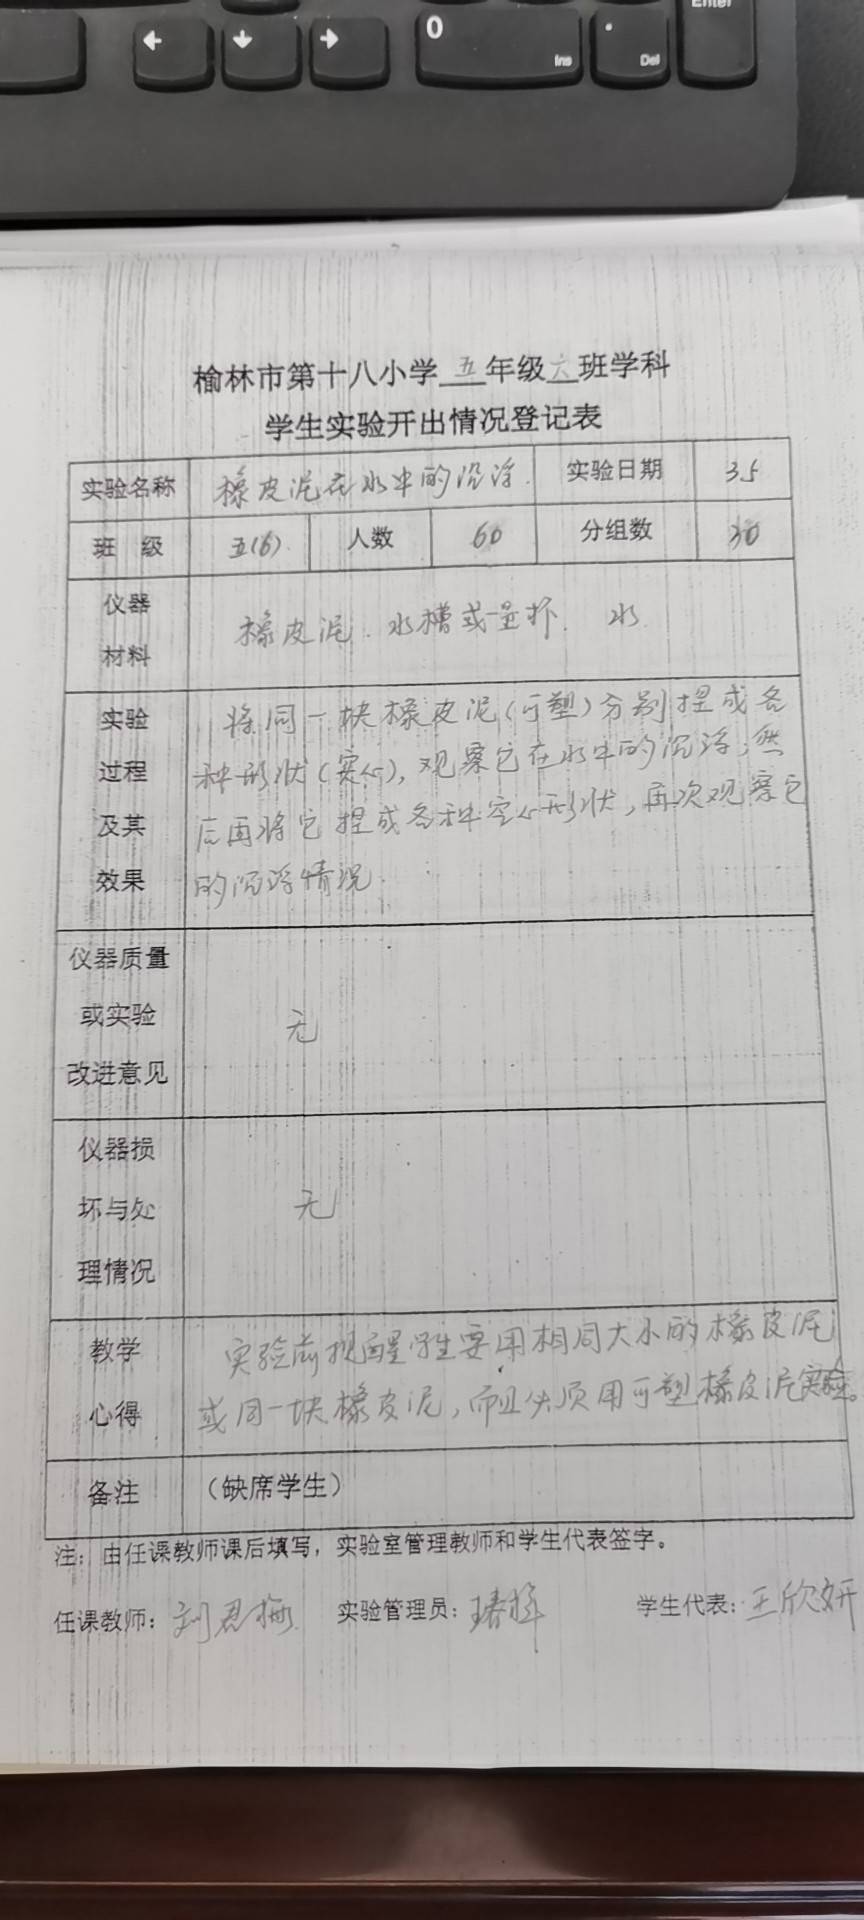 Enter
0
Ins
Del
榆林市第十八小学 五 年级 六 班学科
学生实验开出情况登记表
实验名称 橡皮泥在水中的沉浮 实验日期 3.5
班 级 五(6) 人数 60 分组数 30
仪器
材料
橡皮泥. 水槽或量杯. 水
实验
过程
及其
效果
将同一块橡皮泥(可塑)分别捏成各
种形状(实心),观察它在水中的沉浮,然
后再将它捏成各种空心形状,再次观察它
的沉浮情况.
仪器质量
或实验
改进意见
无
仪器损
坏与处
理情况
无
教学
心得
实验前提醒学生要用相同大小的橡皮泥
或同一块橡皮泥,而且必须用可塑橡皮泥实验。
备注 (缺席学生)
注:由任课教师课后填写,实验室管理教师和学生代表签字。
任课教师: 刘 实验管理员: 学生代表: 王欣妍